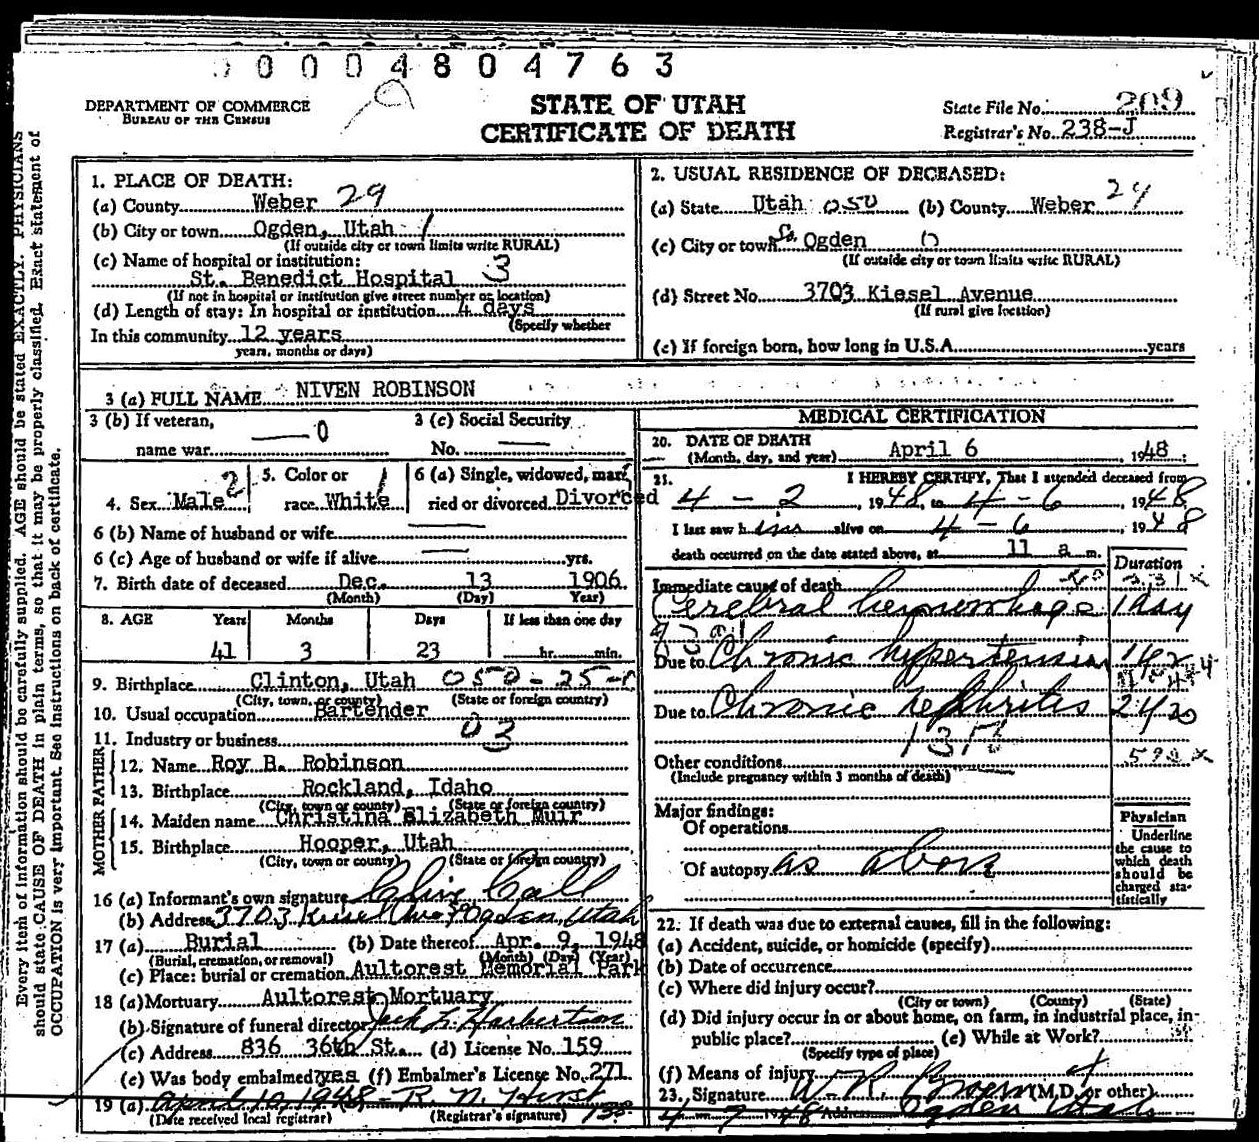 0 0 0 0 4 8 0 4 7 6 3
DEPARTMENT OF COMMERCE
BUREAU OF THE CENSUS
STATE OF UTAH
CERTIFICATE OF DEATH
State File No. 209
Registrar's No. 238-J
Every item of information should be carefully supplied. AGE should be stated EXACTLY. PHYSICIANS
should state CAUSE OF DEATH in plain terms, so that it may be properly classified. Exact statement of
OCCUPATION is very important. See instructions on back of certificate.
1. PLACE OF DEATH:
(a) County Weber 29
(b) City or town Ogden, Utah 1
(If outside city or town limits write RURAL)
(c) Name of hospital or institution:
St. Benedict Hospital 3
(If not in hospital or institution give street number or location)
(d) Length of stay: In hospital or institution 4 days
(Specify whether
In this community 12 years
years, months or days)
2. USUAL RESIDENCE OF DECEASED:
(a) State Utah 050 (b) County Weber 29
(c) City or town So. Ogden 0
(If outside city or town limits write RURAL)
(d) Street No. 3703 Kiesel Avenue
(If rural give location)
(e) If foreign born, how long in U.S.A. years
3 (a) FULL NAME NIVEN ROBINSON
3 (b) If veteran,
name war 0
3 (c) Social Security
No.
4. Sex Male 2
5. Color or
race White 1
6 (a) Single, widowed, mar-
ried or divorced Divorced
6 (b) Name of husband or wife
6 (c) Age of husband or wife if alive yrs.
7. Birth date of deceased Dec. 13 1906
(Month) (Day) Year)
8. AGE Years Months Days If less than one day
41 3 23 hr. min.
9. Birthplace Clinton, Utah 050-25-
(City, town, or county) (State or foreign country)
10. Usual occupation Bartender
11. Industry or business 03
FATHER
12. Name Roy B. Robinson
13. Birthplace Rockland, Idaho
(City, town or county) (State or foreign country)
MOTHER
14. Maiden name Christina Elizabeth Muir
15. Birthplace Hooper, Utah
(City, town or county) (State or foreign country)
16 (a) Informant's own signature Clive Call
(b) Address 3703 Kiesel Ave, Ogden, Utah
17 (a) Burial (b) Date thereof Apr. 9, 1948
(Burial, cremation, or removal) (Month) (Day) (Year)
(c) Place: burial or cremation Aultorest Memorial Park
18 (a) Mortuary Aultorest Mortuary
(b) Signature of funeral director Jack L. Harbertson
(c) Address 836 36th St. (d) License No. 159
(e) Was body embalmed? yes (f) Embalmer's License No. 271
19 (a) April 10, 1948 - R. N. Hirst
(Date received local registrar) (Registrar's signature)
MEDICAL CERTIFICATION
20. DATE OF DEATH
(Month, day, and year) April 6, 1948
21. I HEREBY CERTIFY, That I attended deceased from
4 - 2, 1948, to 4 - 6, 1948
I last saw him alive on 4 - 6, 1948
death occurred on the date stated above, at 11 a m.
Duration
Immediate cause of death 331x
Cerebral hemorrhage 1 day
Due to Chronic hypertension
Due to Chronic nephritis
Other conditions 592x
(Include pregnancy within 3 months of death)
Major findings:
Of operations
Of autopsy as above
Physician
Underline
the cause to
which death
should be
charged sta-
tistically
22. If death was due to external causes, fill in the following:
(a) Accident, suicide, or homicide (specify)
(b) Date of occurrence
(c) Where did injury occur?
(City or town) (County) (State)
(d) Did injury occur in or about home, on farm, in industrial place, in-
public place? (e) While at Work?
(Specify type of place)
(f) Means of injury
23. Signature W. R. Brown (M.D. or other)
4 - 9 1948 Address Ogden Utah